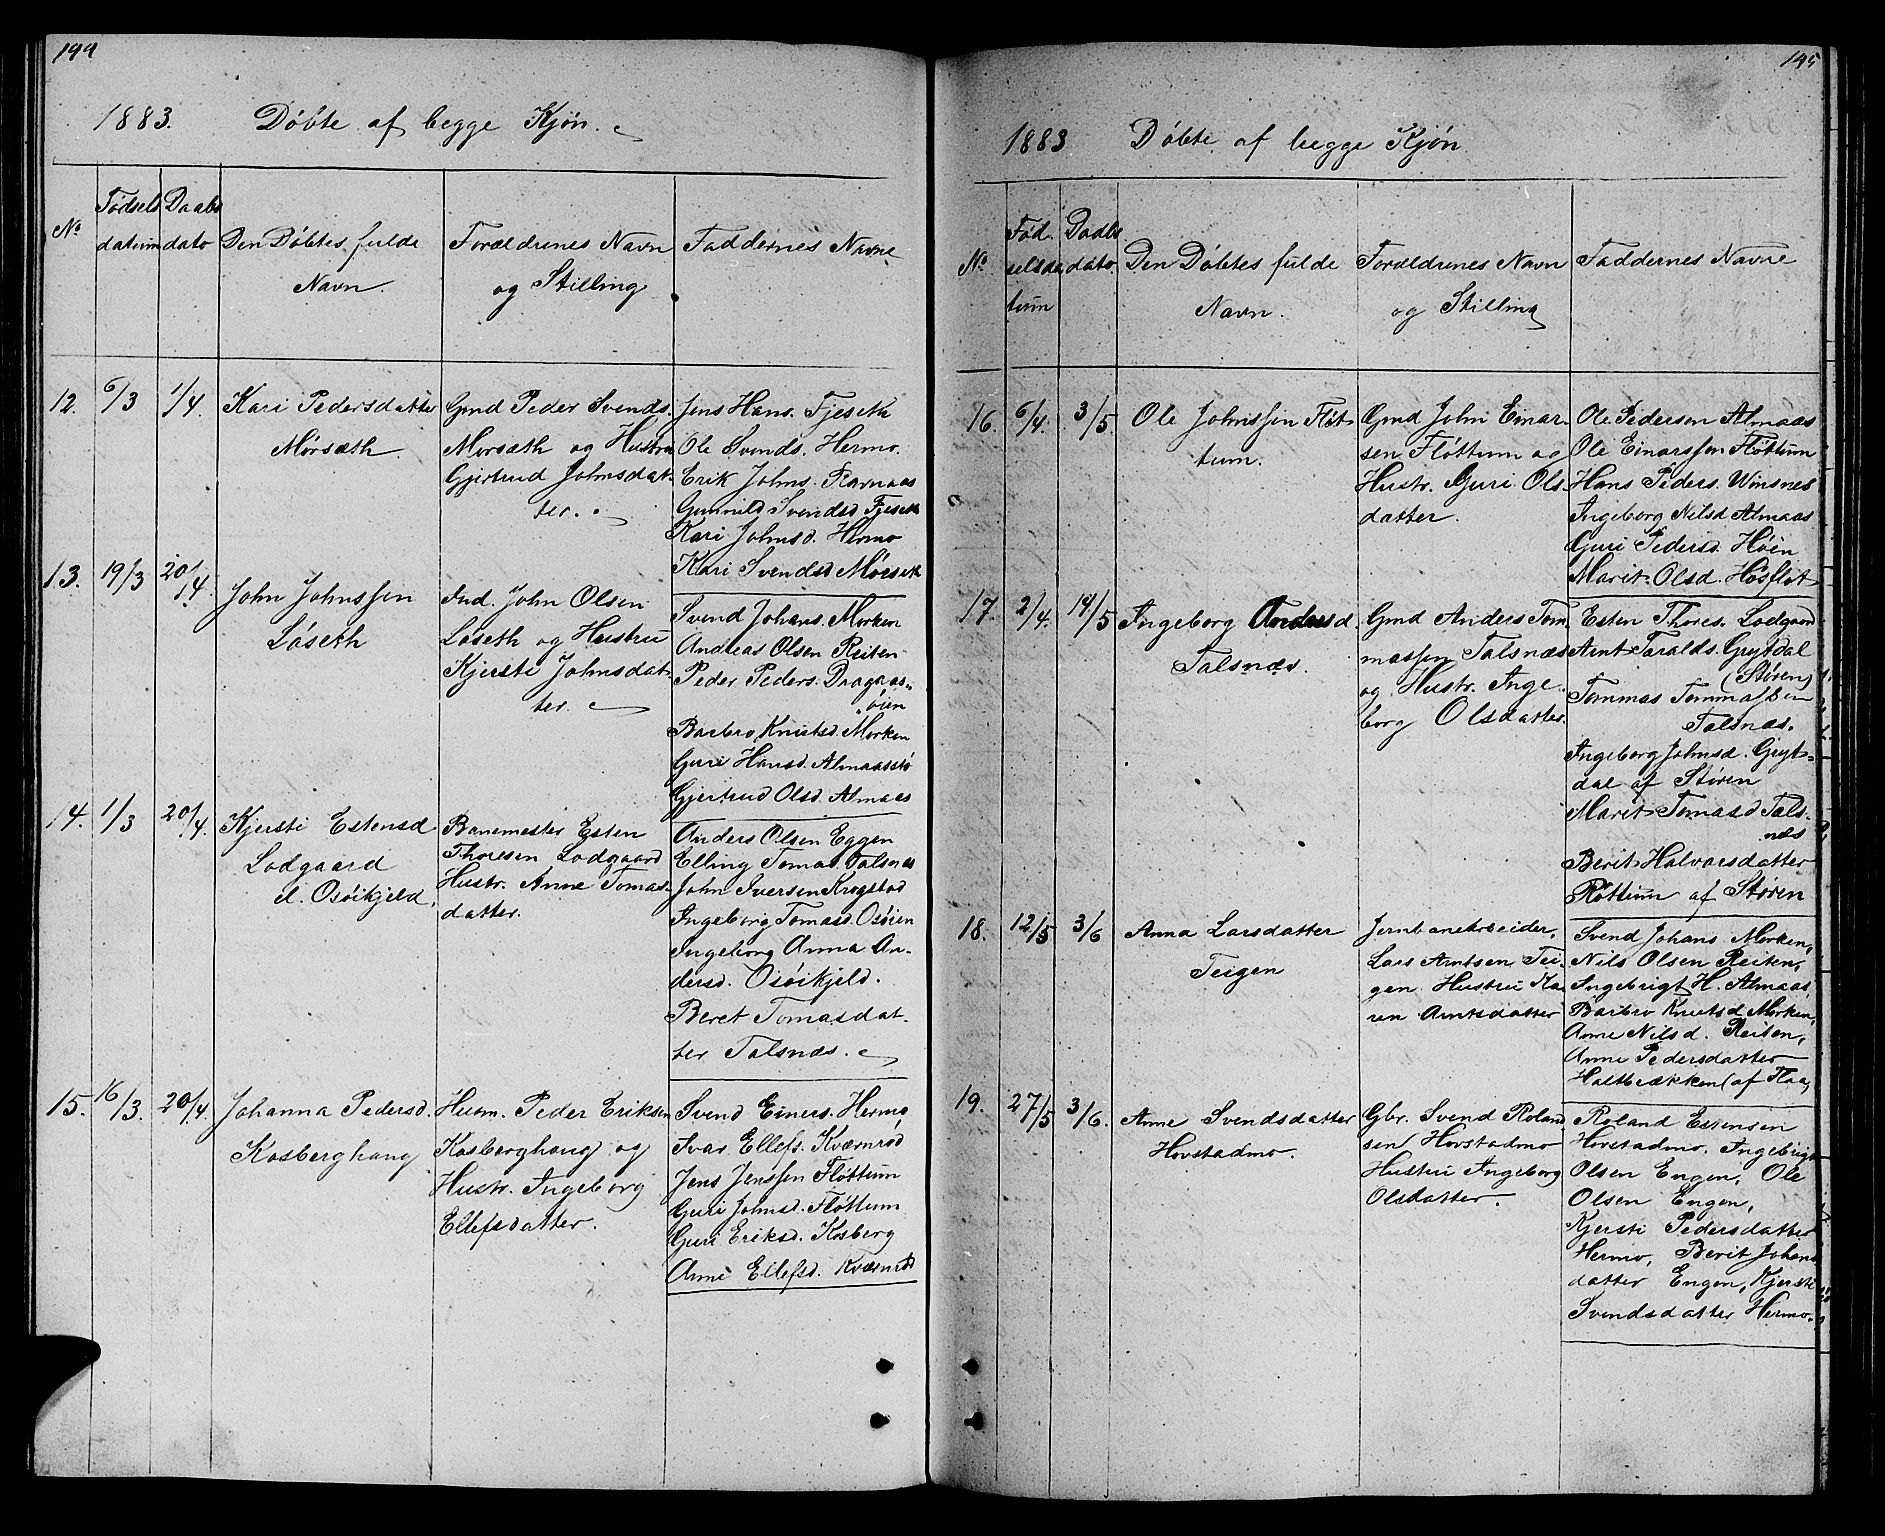 194
1883. Döbte af begge Kjön.
No
Födsels
datum
Daabs
dato
Den Döbtes fulde
Navn.
Forældrenes Navn
og Stilling
Faddernes Navne
12. 6/3 1/4.
Kari Pedersdatter
Mörsæth.
Gmd Peder Svends.
Morsæth og Hustru
Gjertrud Johnsdat-
ter.
Jens Hans. Fjeseth
Ole Svends. Hermo.
Erik Johns. Ravnaas
Gunnild Svendsd Fjeseth
Kari Johnsd. Hermo
Kari Svendsd Mörseth
13. 19/3 20/4.
John Johnssen
Löseth
Ind. John Olsen
Löseth og Hustru
Kjersti Johnsdat-
ter.
Svend Johans. Morken
Andreas Olsen Reiten
Peder Peders. Dragaas-
öien
Barbro Knutsd. Morken
Guri Hansd. Almaasstö
Gjertrud Olsd. Almaas
14. 1/3 20/4.
Kjersti Estensd
Lodgaard
el. Osöikjeld.
Banemester Esten
Thoresen Lodgaard
Hustr. Anne Tomas-
datter.
Anders Olsen Eggen
Elling Tomas. Talsnæs
John Iversen Krogstad
Ingeborg Tomasd. Osöien
Ingeborg Anna An-
dersd. Osöikjeld.
Beret Tomasdat-
ter Talsnæs.
15. 16/3. 20/4.
Johanna Pedersd.
Kosberghaug
Husm. Peder Eriksen
Kosberghaug og
Hustr. Ingeborg
Ellefsdatter.
Svend Einers. Hermo,
Ivar Ellefs. Kværnröd
Jens Jenssen Flöttum
Guri Johnsd. Flöttum
Guri Eriksd. Kosberg
Anne Ellefsd. Kværnröd
195
1883 Döbte af begge Kjön
No.
Föd-
selsda
tum
Daabs
dato.
Den Döbtes fulde
Navn.
Forældrenes Navn
og Stilling
Faddernes Navne
16. 6/4. 3/5.
Ole Johnssen Flöt-
tum.
Gmd John Einar-
sen Flöttum og
Hustr. Guri Ols-
datter.
Ole Pedersen Almaas
Ole Einarssen Flöttum
Hans Peders. Winsnes
Ingeborg Nilsd Almaas
Guri Pedersd. Höin
Marit Olsd. Hosflot
17. 2/4. 14/5
Ingeborg Andersd.
Talsnæs.
Gmd Anders Tom-
massen Talsnæs
og Hustr. Inge-
borg Olsdatter
Esten Thores. Lodgaard
Arnt Taralds. Grytdal
(Stören)
Tommas Tommassen
Talsnæs.
Ingeborg Johnsd. Gryt-
dal af Stören
Marit Tomasd Tals-
nes
Berit Halvarsdatter
Röttum af Stören
18. 12/5 3/6
Anna Larsdatter
Teigen
Jernbanearbeider,
Lars Arntsen Tei-
gen. Hustru Ka-
ren Arntsdatter
Svend Johans Morken,
Nils Olsen Reiten,
Ingebrigt H. Almaas,
Barbro Knutsd Morken,
Anne Nilsd. Reiten,
Anne Pedersdatter
Holtbækken (af Flaa)
19. 27/5 3/6.
Anne Svendsdatter
Hovstadmo.
Gbr. Svend Roland
sen Hovstadmo
Hustru Ingeborg
Olsdatter.
Roland Estensen
Hovstadmo, Ingebrigt
Olsen Engen, Ole
Olsen Engen,
Kjersti Pedersdatter
Hermo, Berit Johans
datter Engen, Kjersti
Svendsdatter Hermo.